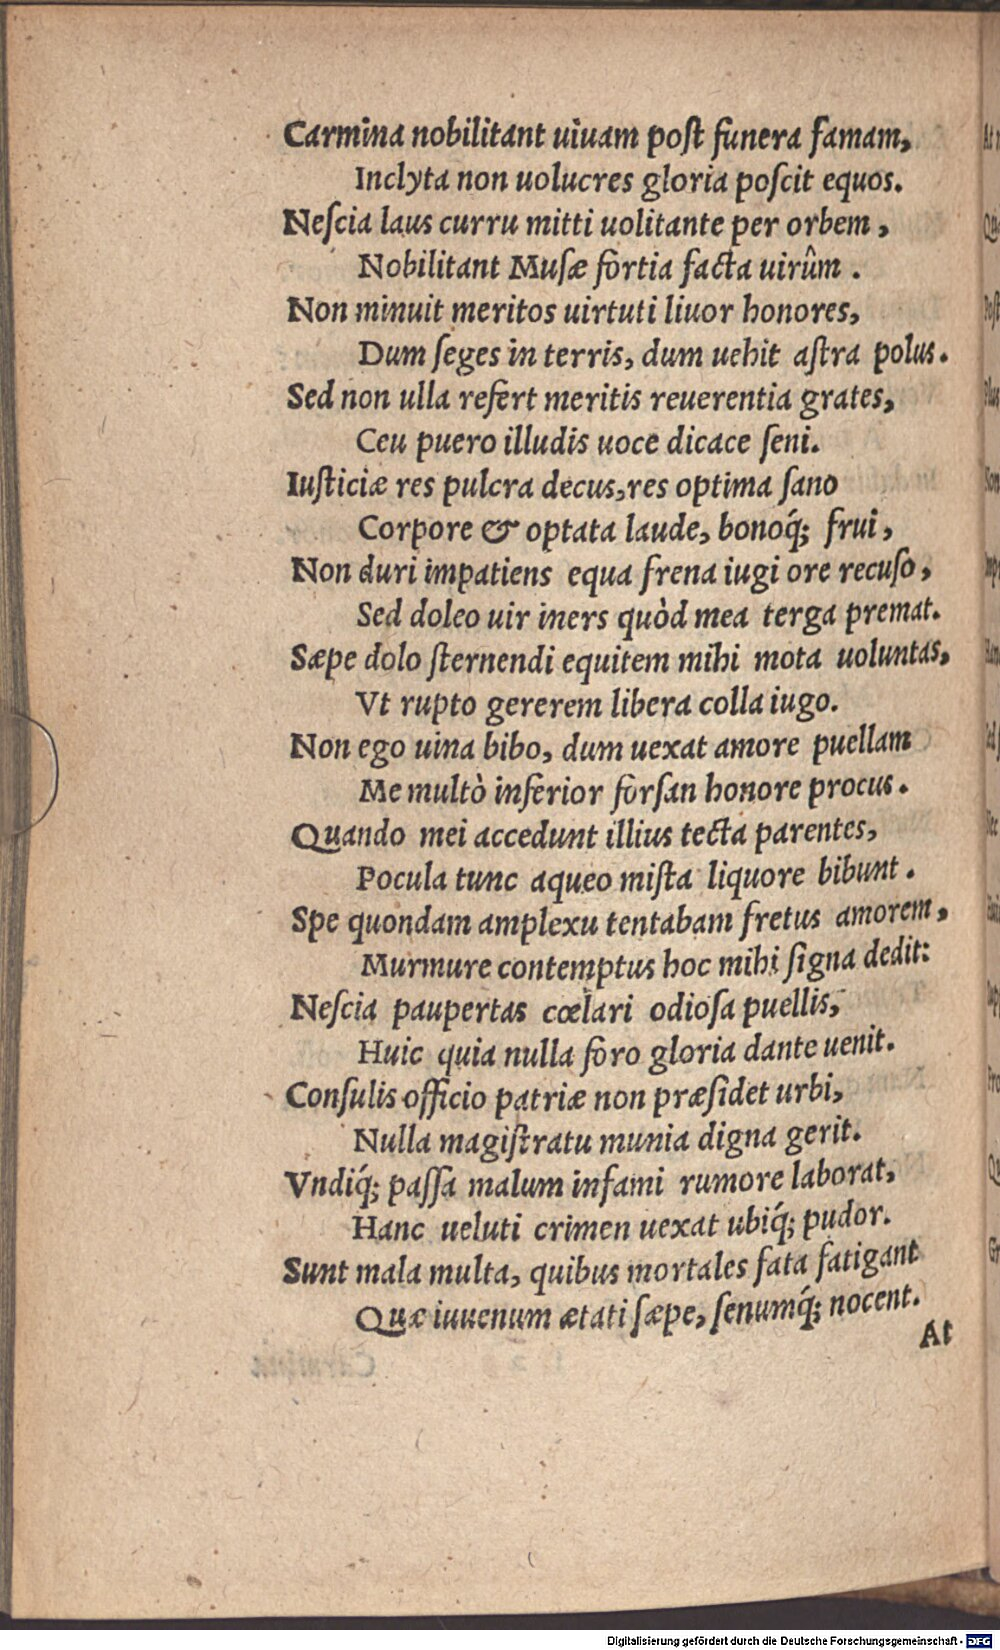 Carmina nobilitant uiuam poſt funera famam,
Inclyta non uolucres gloria poſcit equos.
Neſcia laus curru mitti uolitante per orbem,
Nobilitant Muſæ fortia facta uirûm.
Non minuit meritos uirtuti liuor honores,
Dum ſeges in terris, dum uehit aſtra polus.
Sed non ulla refert meritis reuerentia grates,
Ceu puero illudis uoce dicace ſeni.
Iuſticiæ res pulcra decus, res optima ſano
Corpore & optata laude, bonoq́; frui,
Non duri impatiens equa frena iugi ore recuſo,
Sed doleo uir iners quòd mea terga premat.
Sæpe dolo ſternendi equitem mihi mota uoluntas,
Vt rupto gererem libera colla iugo.
Non ego uina bibo, dum uexat amore puellam
Me multò inferior forſan honore procus.
Quando mei accedunt illius tecta parentes,
Pocula tunc aqueo miſta liquore bibunt.
Spe quondam amplexu tentabam fretus amorem,
Murmure contemptus hoc mihi ſigna dedit:
Neſcia paupertas cœlari odioſa puellis,
Huic quia nulla foro gloria dante uenit.
Conſulis officio patriæ non præſidet urbi,
Nulla magiſtratu munia digna gerit.
Vndiq́; paſſa malum infami rumore laborat,
Hanc ueluti crimen uexat ubiq́; pudor.
Sunt mala multa, quibus mortales fata fatigant
Quæ iuuenum ætati ſæpe, ſenumq́; nocent.
At
Digitalisierung gefördert durch die Deutsche Forschungsgemeinschaft - DFG